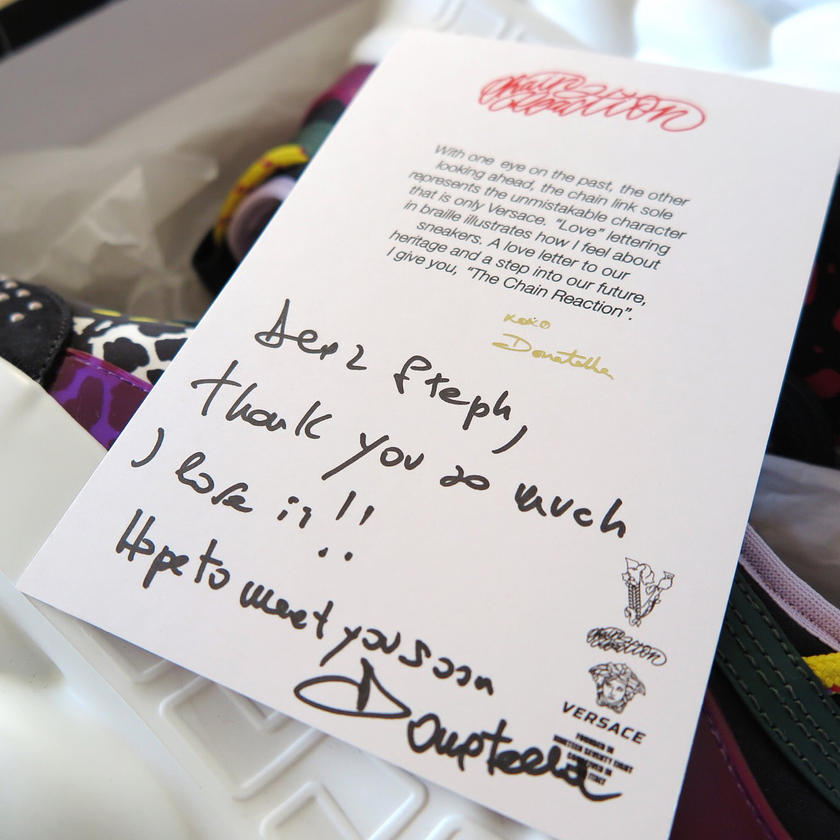 Chain
Reaction
With one eye on the past, the other
looking ahead, the chain link sole
represents the unmistakable character
that is only Versace. "Love" lettering
in braille illustrates how I feel about
sneakers. A love letter to our
heritage and a step into our future,
I give you, "The Chain Reaction".
xoxo
Donatella
Dear Steph,
thank you so much
I love it!!
Hope to meet you soon
Donatella
Chain
Reaction
VERSACE
FOUNDED IN
NINETEEN SEVENTY EIGHT
IN
ITALY